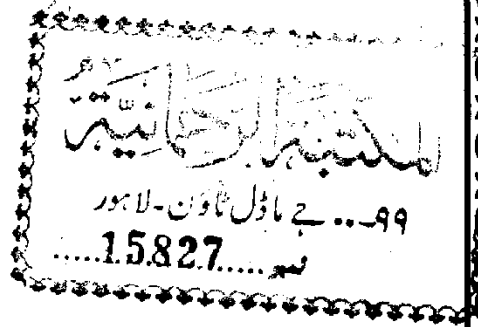 المكتبة الرحمانية
۹۹۔۔۔ جے ماڈل ٹاؤن۔ لاہور
نمبر.....15827.....